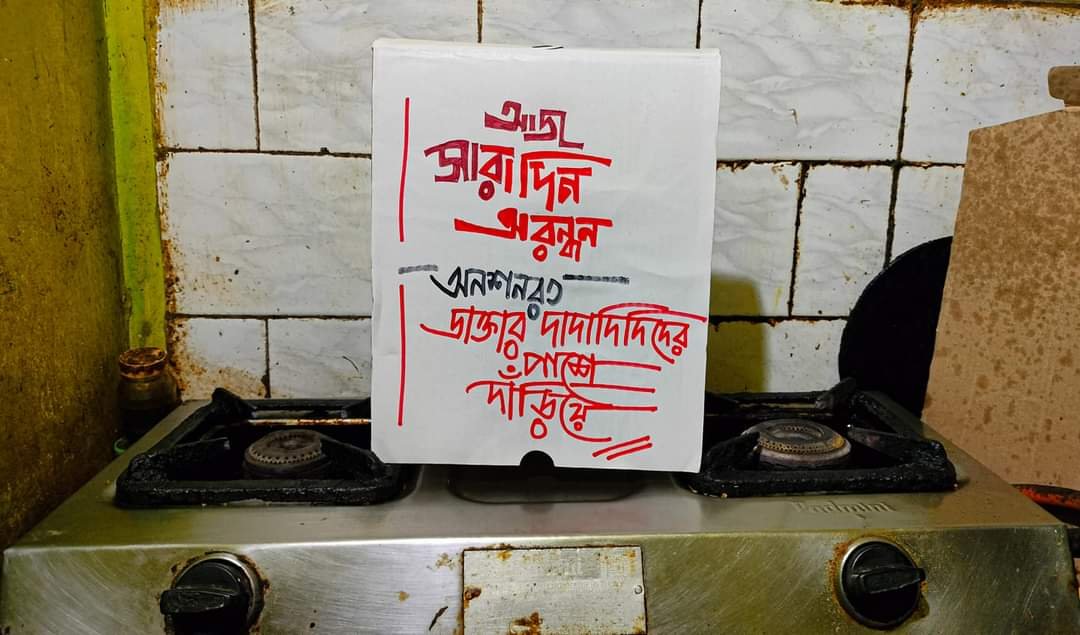 আজ
সারাদিন
অরন্ধন
অনশনরত
ডাক্তার দাদাদিদিদের
পাশে
দাঁড়িয়ে
Padmini